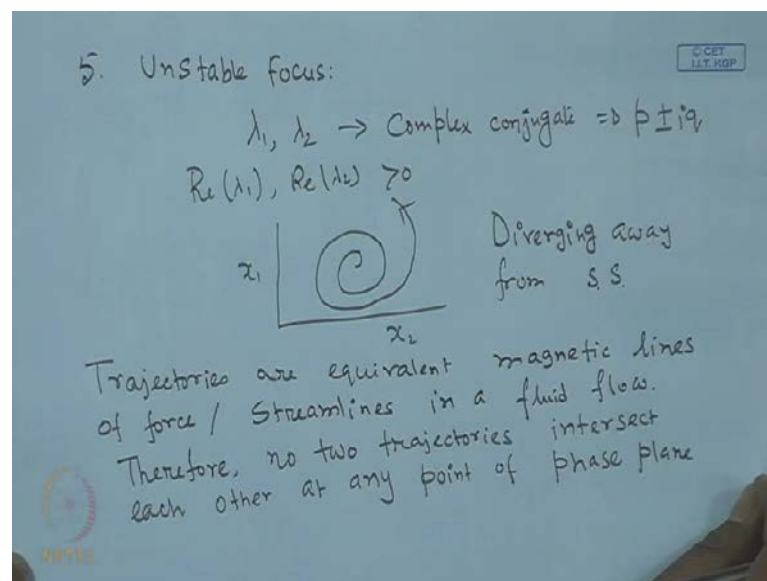 © CET
I.I.T. KGP
5. Unstable focus:
λ₁, λ₂ → Complex conjugate => p ± iq
Re(λ₁), Re(λ₂) >0
x₁
x₂
Diverging away
from S.S.
Trajectories are equivalent magnetic lines
of force / Streamlines in a fluid flow.
Therefore, no two trajectories intersect
each other at any point of phase plane
NPTEL